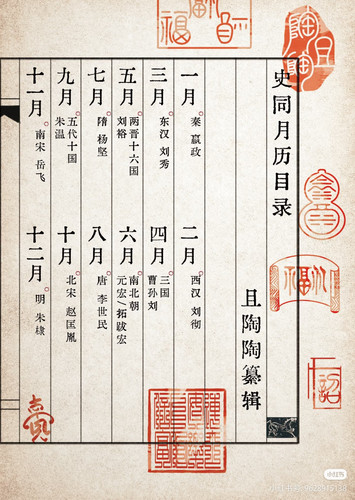 史同月历目录
且陶陶纂辑
一月
秦 嬴政
二月
西汉 刘彻
三月
东汉 刘秀
四月
三国
曹孙刘
五月
两晋十六国
刘裕
六月
南北朝
元宏/拓跋宏
七月
隋 杨坚
八月
唐 李世民
九月
五代十国
朱温
十月
北宋 赵匡胤
十一月
南宋 岳飞
十二月
明 朱棣
且陶陶
小红书